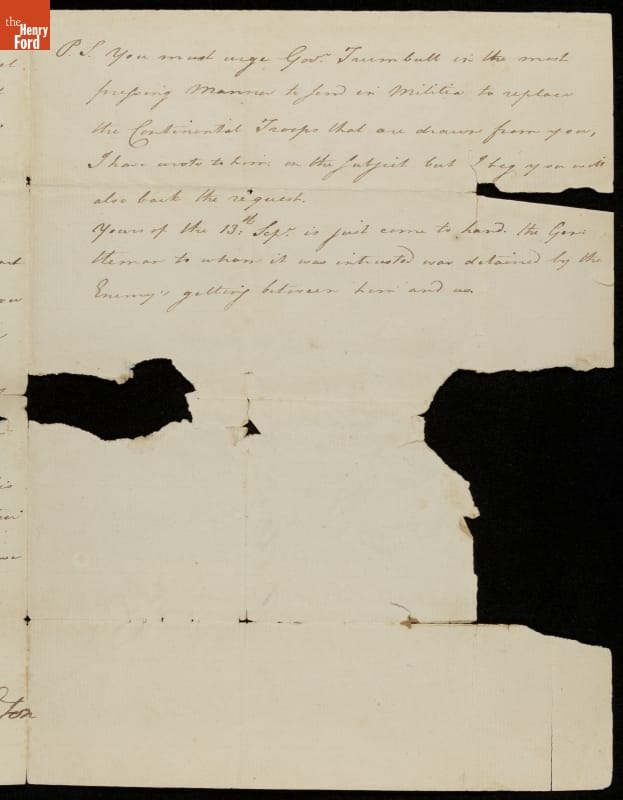 the
Henry
Ford
P.S. You must urge Govr. Trumbull in the most
pressing Manner to send in Militia to replace
the Continental Troops that are drawn from you,
I have wrote to him on the subject but I beg you will
also back the request.
Yours of the 13th: Sepr. is just come to hand. the Gen:
tleman to whom it was intrusted was detained by the
Enemy's getting between him and us.
ton